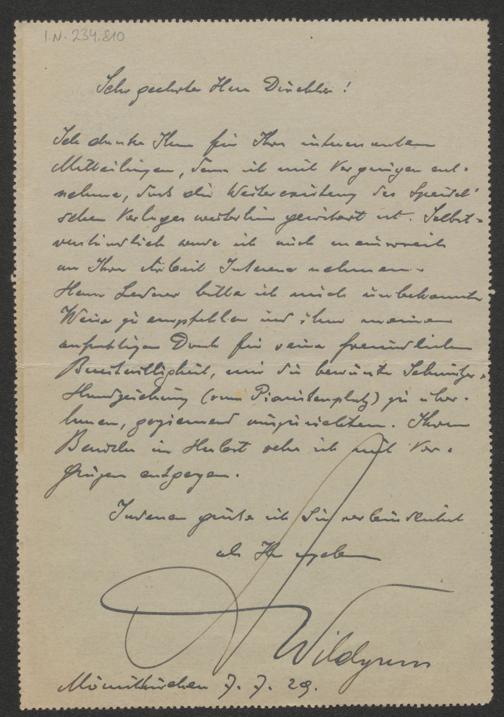 I.N. 234.810
Sehr geehrter Herr
Ich danke Ihnen für Ihre interessanten
Mitteilungen, denen ich mit Vergnügen ent-
nehme, dass die Weiterexistenz des Speidel'
schen Verlages weiterhin gewahrt ist. Selbst-
verständlich werde ich auch meinerseits
an Ihrer Arbeit Interesse nehmen.
Herrn Lederer bitte ich mich unbekannter
Weise zu empfehlen und ihm meinen
aufrichtigen Dank für seine freundliche
Bereitwilligkeit, mir die bewusste
Handzeichnung (vom Piaristenplatz) zu über-
lassen, geziemend auszurichten. Ihrem
Besuche im Herbst sehe ich mit Ver-
gnügen entgegen.
Indessen grüsse ich Sie verbindlichst
als Ihr ergebener
Wildgans
Mönichkirchen 7. 7. 29.